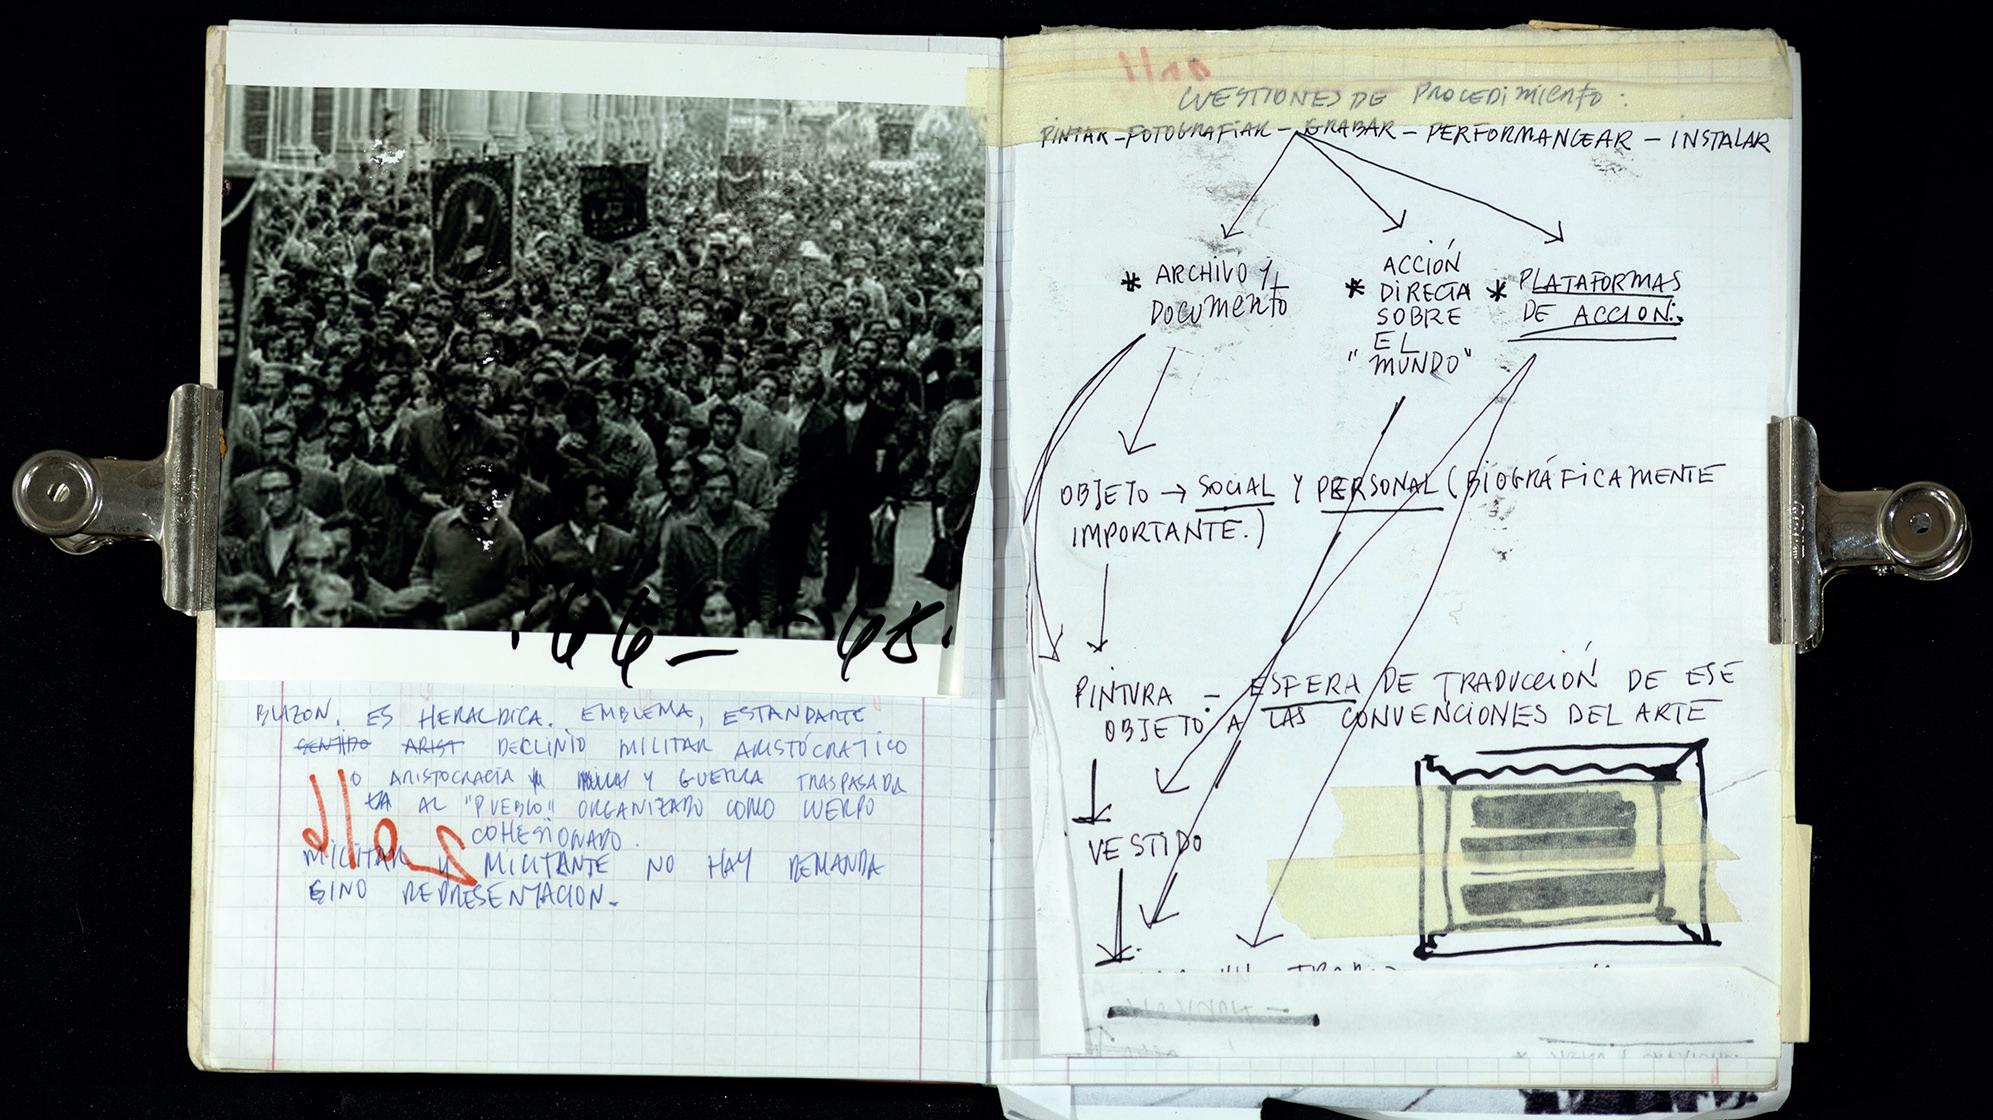 '66 – '68.
BLAZON. ES HERALDICA. EMBLEMA, ESTANDARTE
SENTIDO ARIST DECLINIO MILITAR ARISTÓCRATICO
O ARISTOCRACIA Y GUERRA TRASPASADA
AL "PUEBLO" ORGANIZADO COMO CUERPO
COHESIONADO.
MILITAR Y MILITANTE NO HAY DEMANDA
SINO REPRESENTACION.
CUESTIONES DE PROCEDIMIENTO:
PINTAR – FOTOGRAFIAR – GRABAR – PERFORMANCEAR – INSTALAR
* ARCHIVO Y
DOCUMENTO
* ACCIÓN
DIRECTA
SOBRE
EL
"MUNDO"
* PLATAFORMAS
DE ACCION:
OBJETO → SOCIAL Y PERSONAL (BIOGRÁFICAMENTE
IMPORTANTE.)
PINTURA – ESFERA DE TRADUCCIÓN DE ESE
OBJETO A LAS CONVENCIONES DEL ARTE
VESTIDO